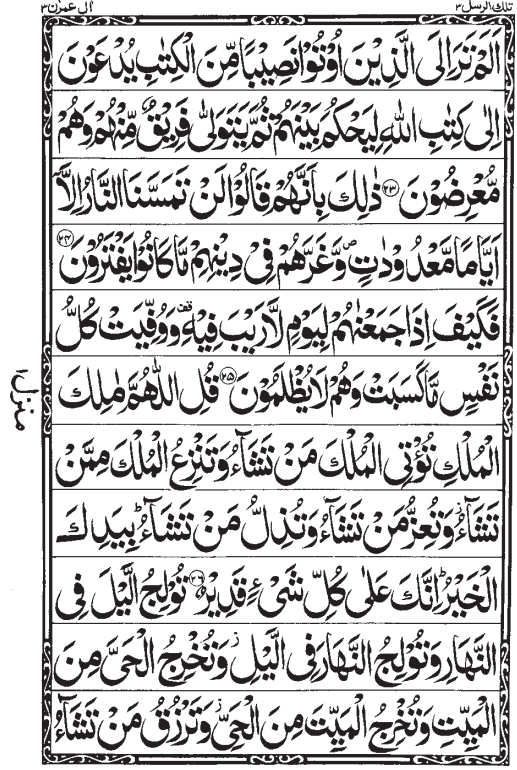 تلك الرسل ٣
ال عمرٰن ٣
اَلَمْ تَرَ اِلَى الَّذِيْنَ اُوْتُوْا نَصِيْبًا مِّنَ الْكِتٰبِ يُدْعَوْنَ
اِلٰى كِتٰبِ اللّٰهِ لِيَحْكُمَ بَيْنَهُمْ ثُمَّ يَتَوَلّٰى فَرِيْقٌ مِّنْهُمْ وَهُمْ
مُّعْرِضُوْنَ ﴿۲۳﴾ ذٰلِكَ بِاَنَّهُمْ قَالُوْا لَنْ تَمَسَّنَا النَّارُ اِلَّاۤ
اَيَّامًا مَّعْدُوْدٰتٍ ۪ وَّغَرَّهُمْ فِيْ دِيْنِهِمْ مَّا كَانُوْا يَفْتَرُوْنَ ﴿۲۴﴾
فَكَيْفَ اِذَا جَمَعْنٰهُمْ لِيَوْمٍ لَّا رَيْبَ فِيْهِ ۟ وَوُفِّيَتْ كُلُّ
نَفْسٍ مَّا كَسَبَتْ وَهُمْ لَا يُظْلَمُوْنَ ﴿۲۵﴾ قُلِ اللّٰهُمَّ مٰلِكَ
الْمُلْكِ تُؤْتِي الْمُلْكَ مَنْ تَشَآءُ وَتَنْزِعُ الْمُلْكَ مِمَّنْ
تَشَآءُ ؗ وَتُعِزُّ مَنْ تَشَآءُ وَتُذِلُّ مَنْ تَشَآءُ ؕ بِيَدِكَ
الْخَيْرُ ؕ اِنَّكَ عَلٰى كُلِّ شَيْءٍ قَدِيْرٌ ﴿۲۶﴾ تُوْلِجُ الَّيْلَ فِي
النَّهَارِ وَتُوْلِجُ النَّهَارَ فِي الَّيْلِ ؗ وَتُخْرِجُ الْحَيَّ مِنَ
الْمَيِّتِ وَتُخْرِجُ الْمَيِّتَ مِنَ الْحَيِّ ؗ وَتَرْزُقُ مَنْ تَشَآءُ
منزل ١